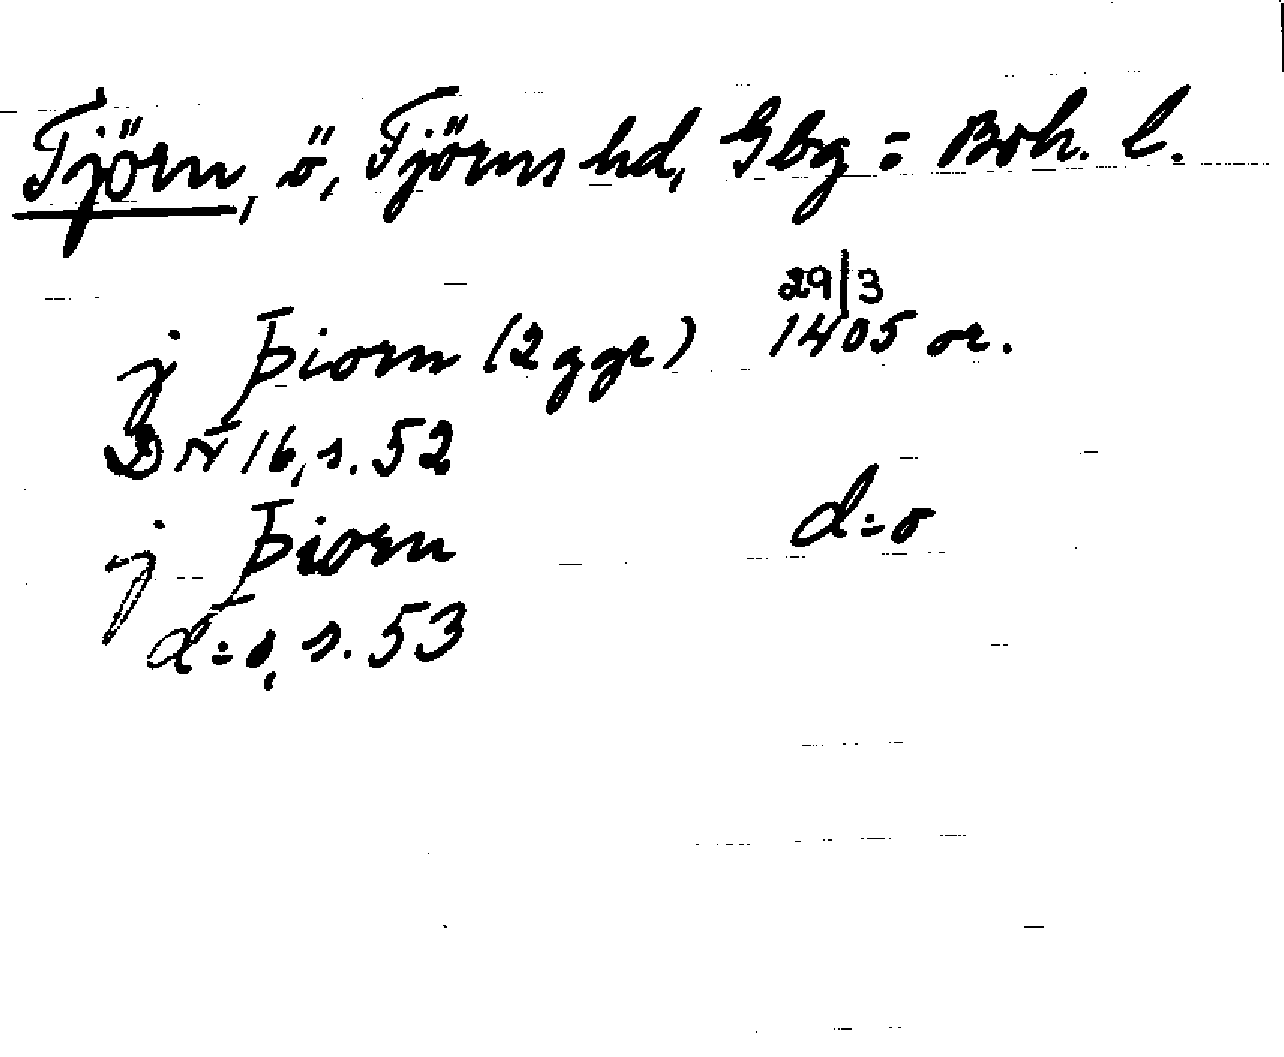 Tjörn, ö, Tjörns hd, Gbg = Boh. l.
29/3
j Þiorn (2 ggr) 1405 or.
DN 16, s. 52
j Þiorn d:o
d:o, s. 53